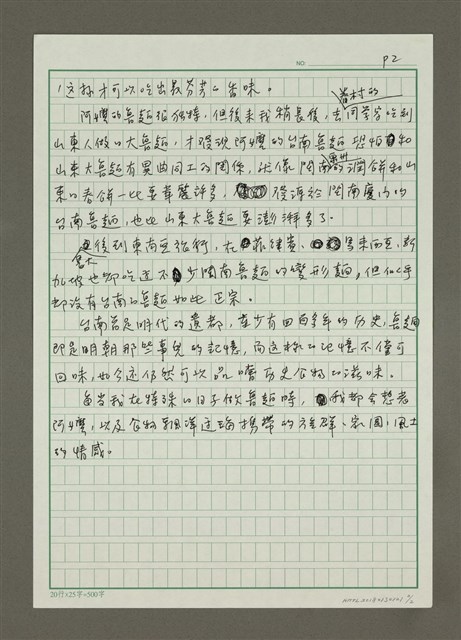 NO. P2
，這樣才可以吃出最芬芳的香味。
阿嬤的魯麵很獨特，但後來我稍長後，去同學家吃到
眷村的
山東人做的大魯麵，才發現阿嬤的台南魯麵恐怕和
山東大魯麵有異曲同工的關係，就像閩南的潤餅和山
東的春餅一比要華麗許多，發源於閩南廈門的
台南魯麵，也比山東大魯麵要澎湃多了。
後到東南亞旅行，在菲律賓、馬來西亞、新
加坡也都吃過不少閩南魯麵的變形麵，但似乎
都沒有台南的魯麵如此正宗。
台南曾是明代的遺都，至少有四百多年的歷史，魯麵
即是明朝那些事兒的記憶，而這樣的記憶不僅可
回味，如今還仍然可以品嚐歷史食物的滋味。
每當我在特殊的日子做魯麵時，我都會想起
阿嬤，以及食物飄洋過海攜帶的族群、家國、風土
的情感。
20行×25字=500字